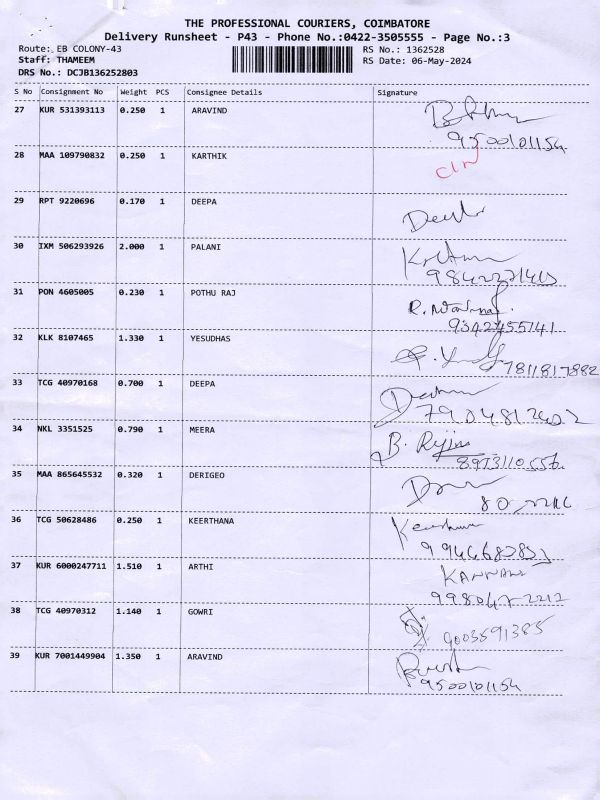 THE PROFESSIONAL COURIERS, COIMBATORE
Delivery Runsheet - P43 - Phone No.:0422-3505555 - Page No.:3
Route: EB COLONY-43 RS No.: 1362528
Staff: THAMEEM RS Date: 06-May-2024
DRS No.: DCJB136252803
S No Consignment No Weight PCS Consignee Details Signature
27 KUR 531393113 0.250 1 ARAVIND
9500101154
28 MAA 109790832 0.250 1 KARTHIK
29 RPT 9220696 0.170 1 DEEPA
30 IXM 506293926 2.000 1 PALANI
31 PON 4605005 0.230 1 POTHU RAJ
9342455141
32 KLK 8107465 1.330 1 YESUDHAS
7811817882
33 TCG 40970168 0.700 1 DEEPA
34 NKL 3351525 0.790 1 MEERA
8973110556
35 MAA 865645532 0.320 1 DERIGEO
36 TCG 50628486 0.250 1 KEERTHANA
37 KUR 6000247711 1.510 1 ARTHI KANNAN
38 TCG 40970312 1.140 1 GOWRI
9003591385
39 KUR 7001449904 1.350 1 ARAVIND
9500101154